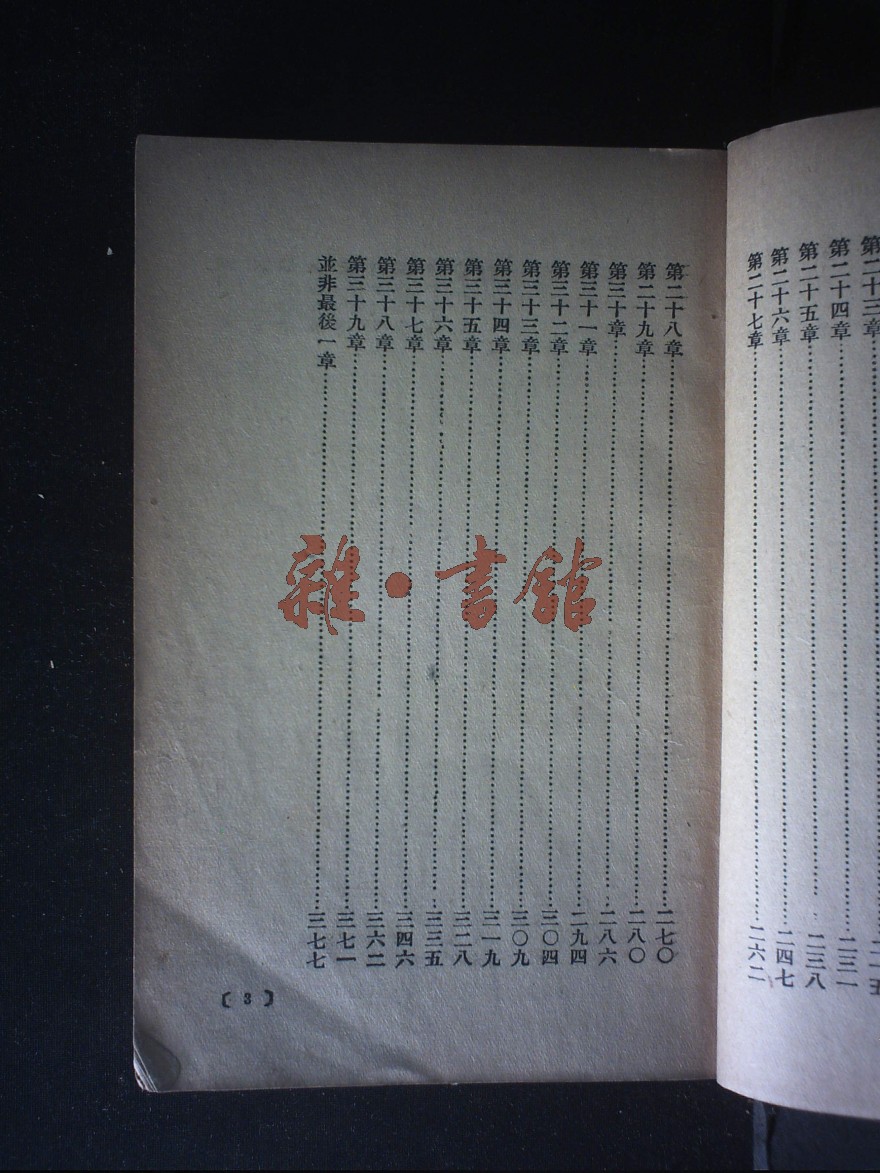 第二十三章
第二十四章……二三一
第二十五章……二三八
第二十六章……二四七
第二十七章……二六二
第二十八章……二七〇
第二十九章……二八〇
第三十章……二八六
第三十一章……二九四
第三十二章……三〇四
第三十三章……三〇九
第三十四章……三一九
第三十五章……三二八
第三十六章……三三五
第三十七章……三四六
第三十八章……三六二
第三十九章……三七一
並非最後一章……三七七
〔3〕
雜·書館